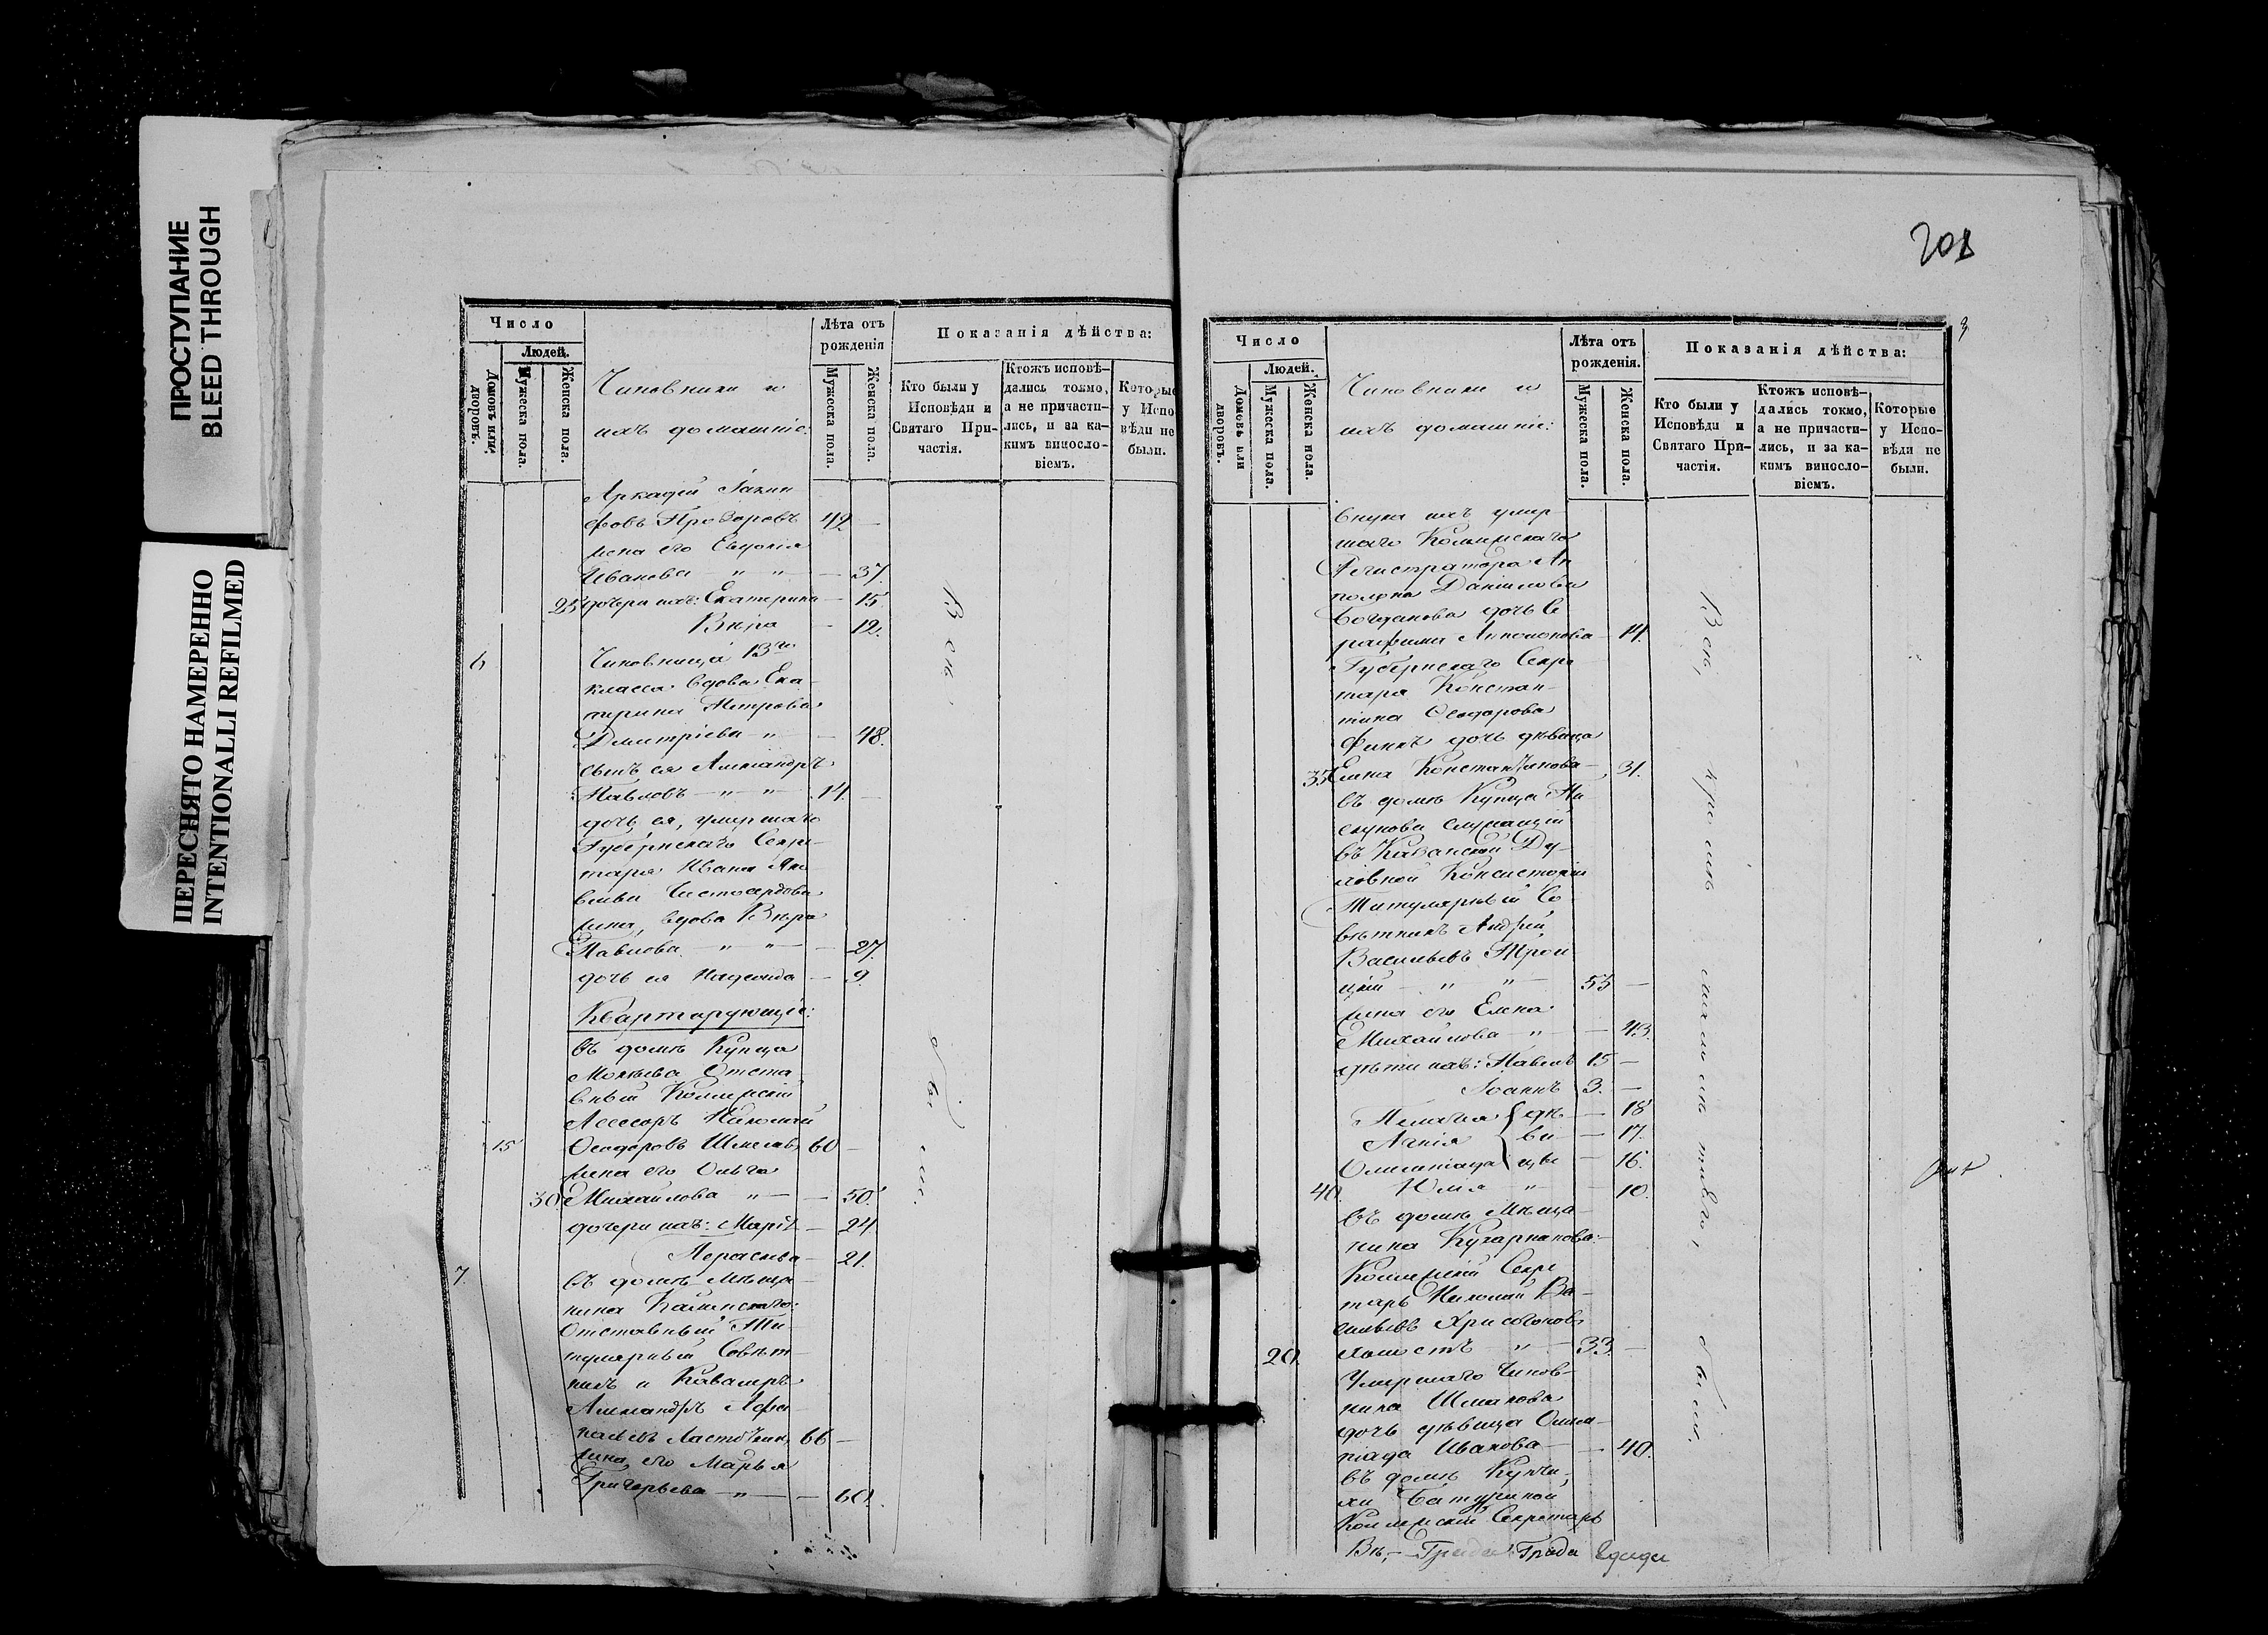 ПРОСТУПАНИЕ
BLEED THROUGH
ПЕРЕСНЯТО НАМЕРЕННО
INTENTIONALLI REFILMED
Число
Людей.
Домовъ или дворовъ.
Мужеска пола.
Женска пола.
Чиновники и
ихъ домашніе:
Лѣта отъ
рожденія
Мужеска пола.
Женска пола.
Показанія дѣйства:
Кто были у
Исповѣди и
Святаго При-
частія.
Ктожъ исповѣ-
дались токмо,
а не причасти-
лись, и за ка-
кимъ виносло-
віемъ.
Которые
у Испо
вѣди не
были.
Аркадій Іакин
фовъ Прозоровъ 42 —
жена его Евдокія
Иванова — " " — — 37.
25 дочери ихъ: Екатерина — 15.
Вѣра — 12.
6. Чиновница 13го
класса вдова Ека-
терина Петрова
Дмитріева — " — — 48.
сынъ ея Александръ
Павловъ — " — " 14. —
дочь ея, умершаго
Губернскаго Секре-
таря Ивана
жена, вдова Вѣра
Павлова — " " — — 27.
дочь ея Надежда — 9.
Квартирующіе:
въ домѣ Купца
Отста
вный Коллежскій
Ассесоръ Николай
15 Ѳеодоровъ 60 —
жена его Ольга
30 Михайлова " — — 50.
дочери ихъ: Марія — 24.
Параскева — 21.
7. въ домѣ Мѣща-
нина Каменскаго:
Отставный Ти-
тулярный Совѣт-
никъ и Кавалеръ
Александръ Афа-
насьевъ 66 —
жена его Марья
Григорьева — " — — 60.
Всѣ
были.
201
3
Число
Людей.
Домовъ или дворовъ.
Мужеска пола.
Женска пола.
Чиновники и
ихъ домашніе:
Лѣта отъ
рожденія.
Мужеска пола.
Женска пола.
Показанія дѣйства:
Кто были у
Исповѣди и
Святаго При-
частія.
Ктожъ исповѣ-
дались токмо,
а не причасти-
лись, и за ка-
кимъ виносло-
віемъ.
Которые
у Испо-
вѣди не
были.
внука ихъ умер-
шаго Коллежскаго
Регистратора Ап
полона Данилова
Богданова дочь Се
рафима Аполонова — 14.
Губернскаго Секре
таря Констан-
тина Ѳеодорова
Финкъ дочь дѣвица
35 Елена Константинова — 31.
въ домѣ Купца Пи
скунова служащій
въ Казанской Ду-
ховной Консисторіи
Титулярный Со
вѣтникъ Андрей
Васильевъ Трои
цкій — " — " 55 —
жена его Елена
Михайлова — " — 43.
дѣти ихъ: Павелъ 15 —
Іоаннъ 3. —
Пелагія дѣ — 18
Агнія ви — 17.
Олимпіада цы — 16.
40. Юлія — " — 10.
въ домѣ Мѣща-
нина
Коллежскій Секре
тарь Николай Ва-
сильевъ
20. холостъ — " — 33. —
Умершаго Чинов-
ника Шмакова
дочь дѣвица Олим-
піада Иванова — — 40.
въ домѣ Купчи-
хи
Коллежскій Секретарь
Всѣ,
кромѣ
были.